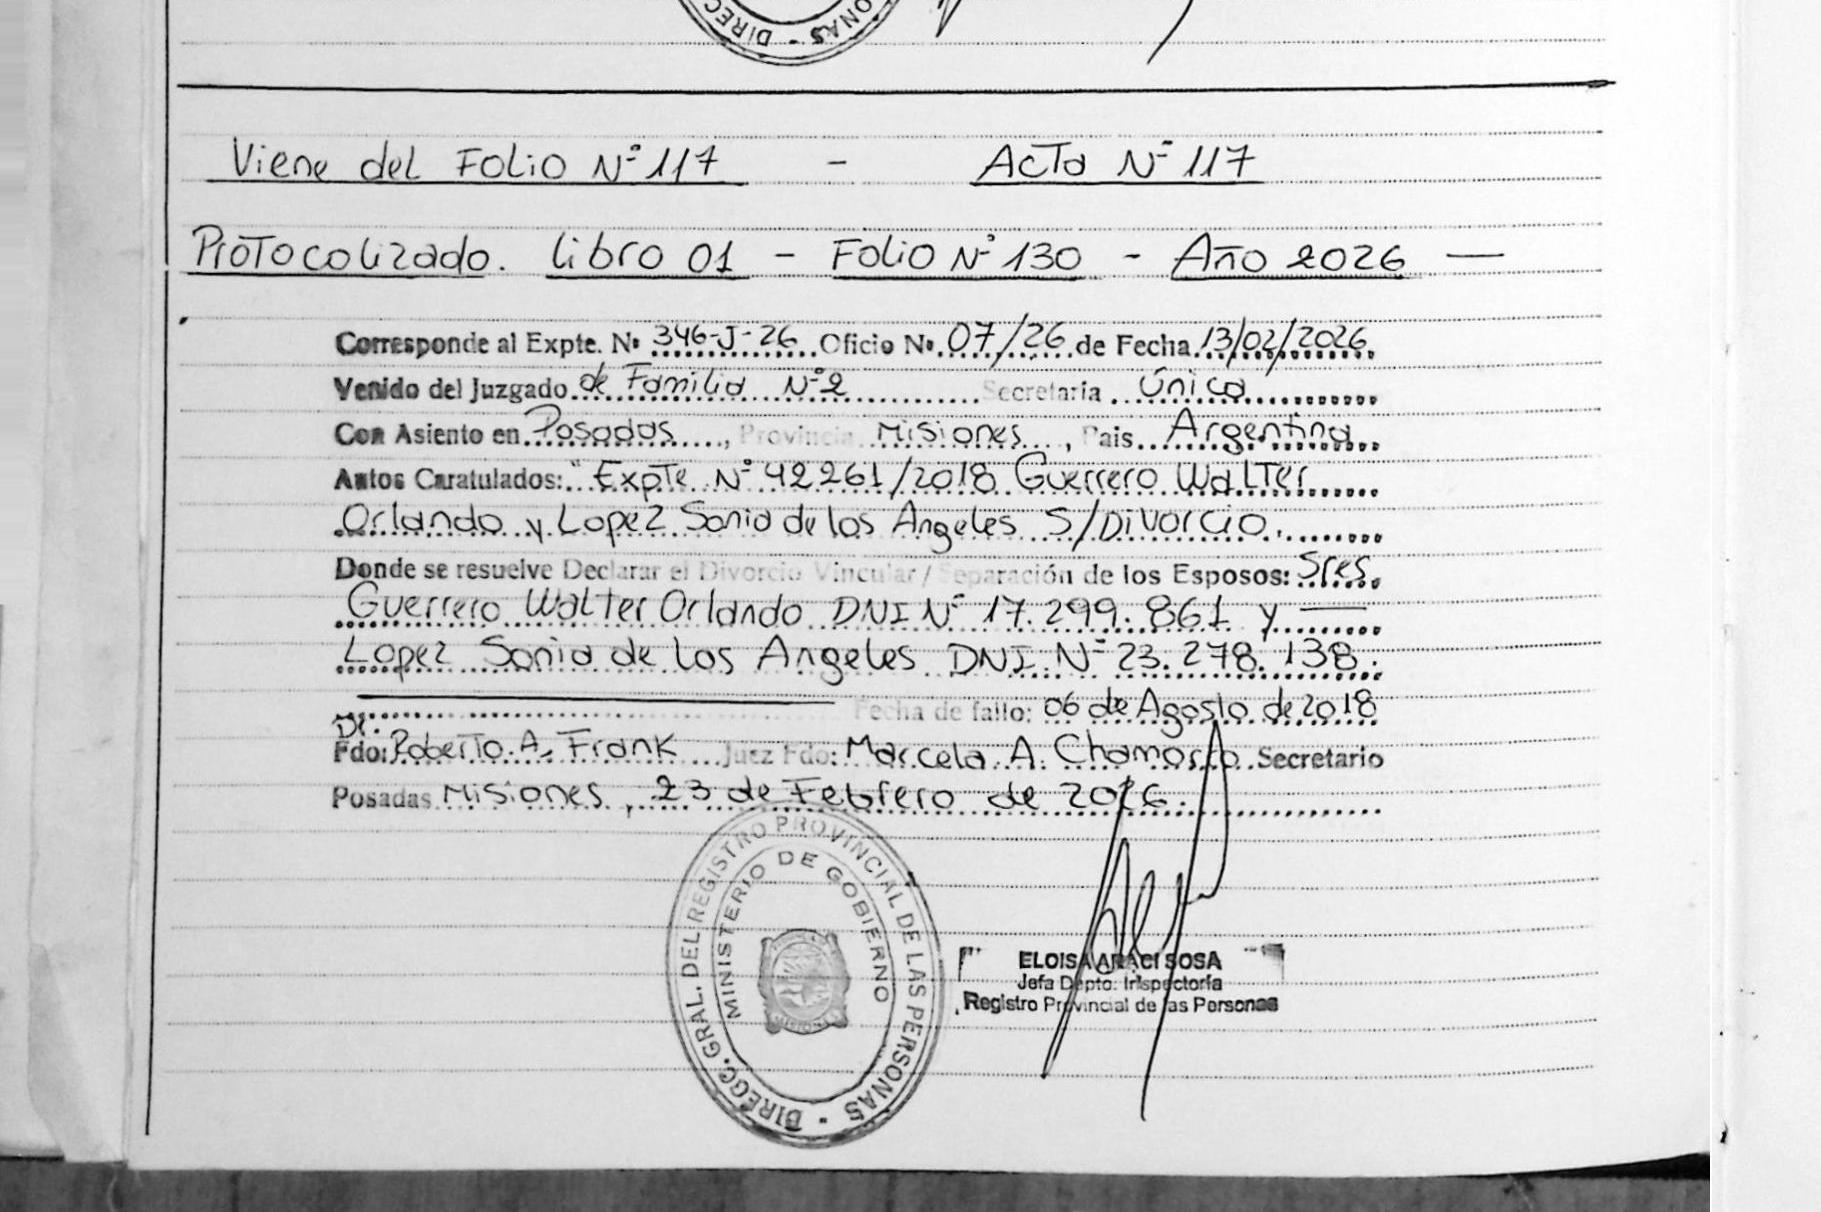 DIRECC ONAS -
Viene del Folio Nº 117 - Acta Nº 117
Protocolizado. Libro 01 - Folio Nº 130 - Año 2026 —
Corresponde al Expte. Nº 346-J-26 Oficio Nº 07/26 de Fecha 13/02/2026.
Venido del Juzgado de Familia Nº 2 Secretaria Única
Con Asiento en Posadas, Provincia Misiones, Pais Argentina
Autos Caratulados: "Expte Nº 42261/2018 Guerrero Walter
Orlando y Lopez Sonia de los Angeles S/Divorcio.
Donde se resuelve Declarar el Divorcio Vincular / Separación de los Esposos: Sres.
Guerrero Walter Orlando DNI Nº 17.299.861 y —
Lopez Sonia de los Angeles DNI Nº 23.278.138.
Fecha de fallo: 06 de Agosto de 2018
Fdo: Dr. Roberto A. Frank Juez Fdo: Marcela A. Chamorro Secretario
Posadas Misiones, 23 de Febrero de 2026.
DIRECC. GRAL. DEL REGISTRO PROVINCIAL DE LAS PERSONAS -
MINISTERIO DE GOBIERNO
ELOISA ARACI SOSA
Jefa Depto. Inspectoría
Registro Provincial de las Personas